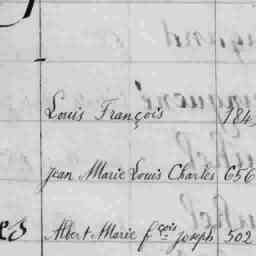 Louis François 184
Jean Marie Louis Charles 656
Albert Marie fçois Joseph 502